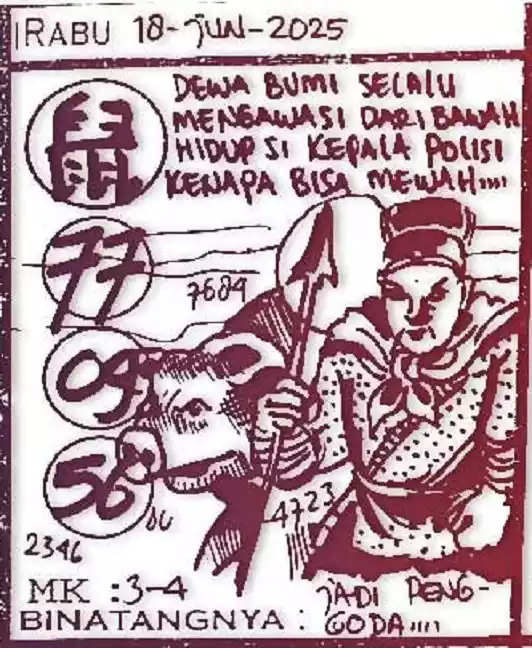 RABU 18-JUN-2025
DEWA BUMI SELALU
MENGAWASI DARI BAWAH
HIDUP SI KEPALA POLISI
KENAPA BISA MEWAH....
鼠
77
7684
09
56
06
4723
2346
MK :3-4
BINATANGNYA : JADI PENG-
GODA....